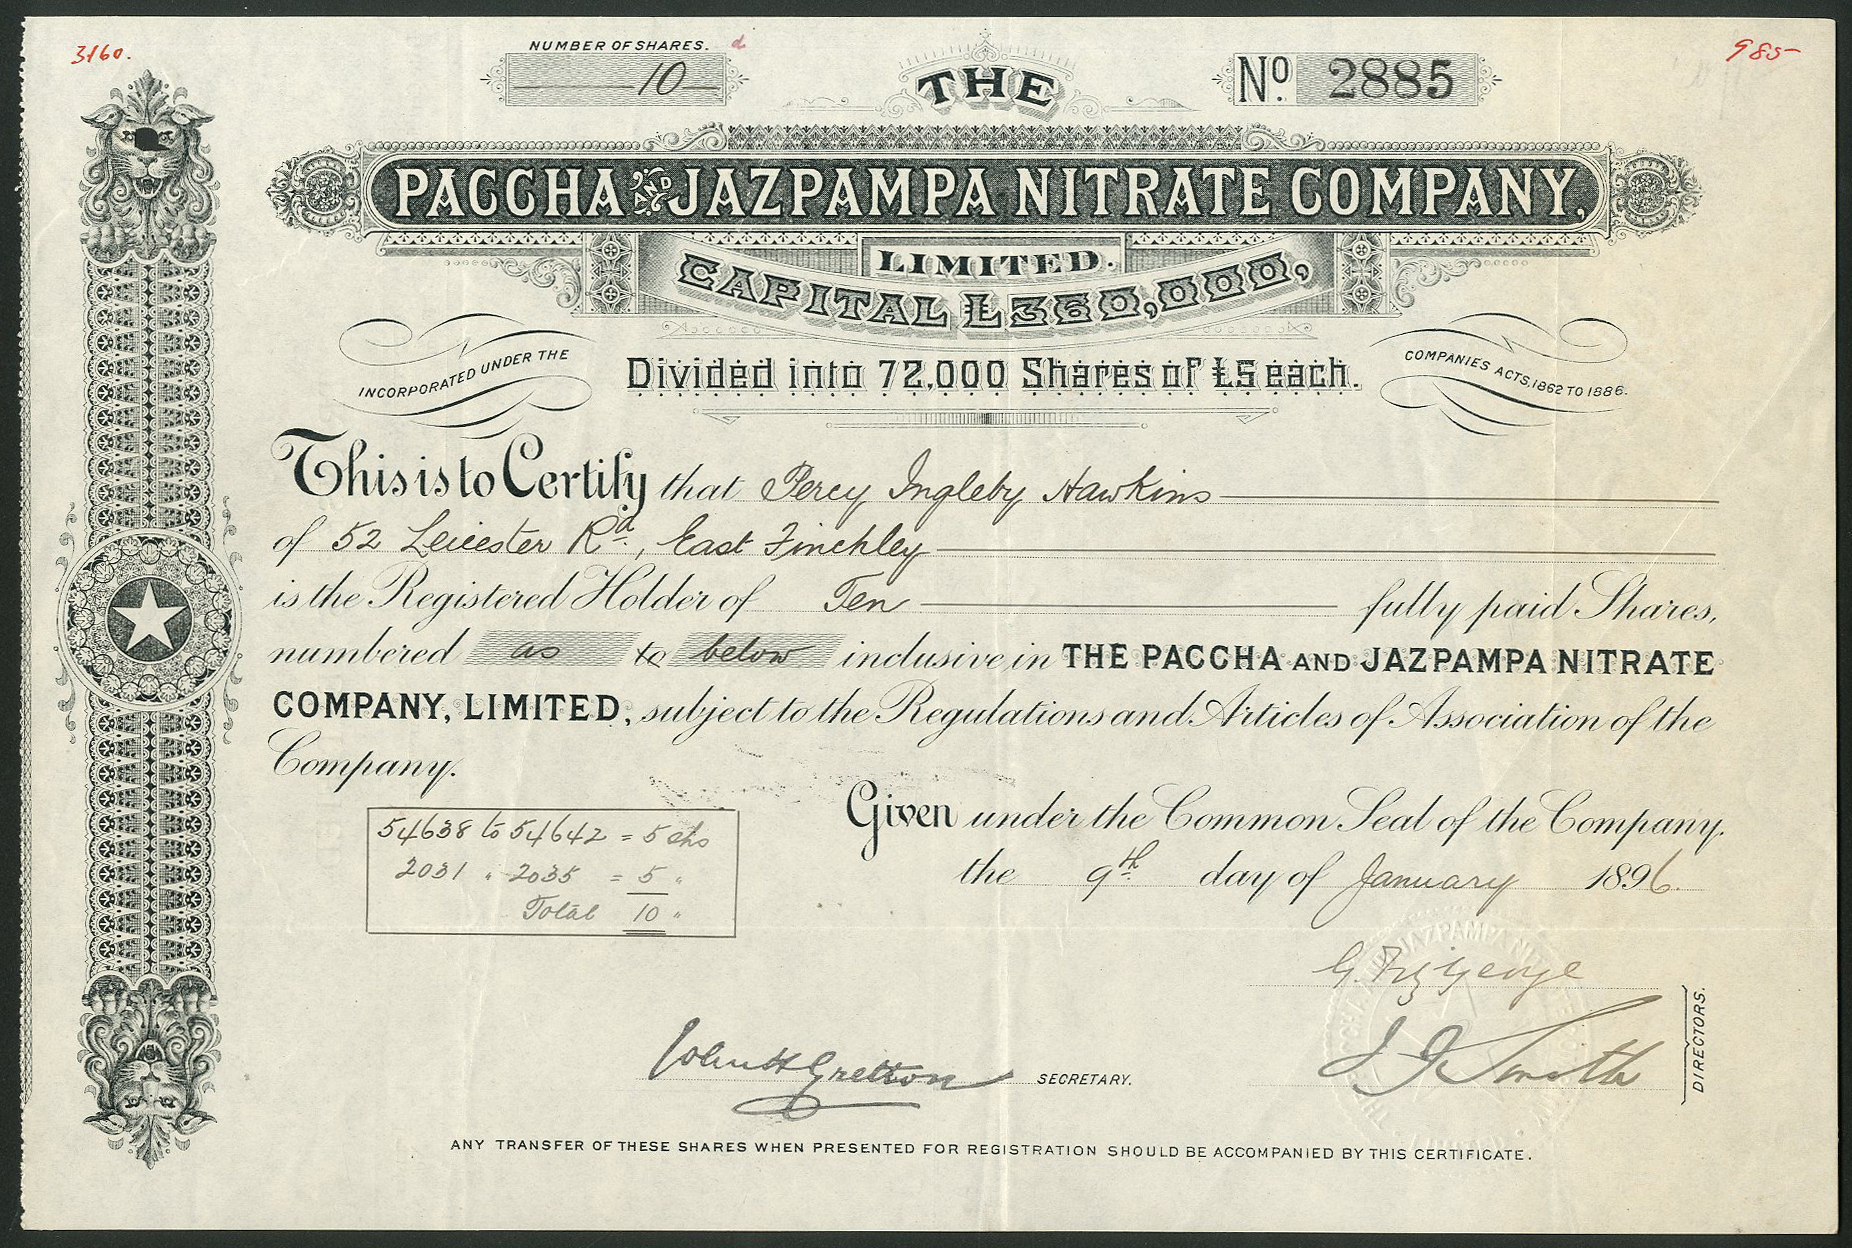 3160.
NUMBER OF SHARES.
10
THE
No. 2885
985
PACCHA AND JAZPAMPA NITRATE COMPANY,
LIMITED.
CAPITAL £360,000,
INCORPORATED UNDER THE
COMPANIES ACTS, 1862 TO 1886.
Divided into 72,000 Shares of £5 each.
This is to Certify that Percy Ingleby Hawkins
of 52 Leicester Rd., East Finchley
is the Registered Holder of Ten fully paid Shares,
numbered as to below inclusive in THE PACCHA AND JAZPAMPA NITRATE
COMPANY, LIMITED, subject to the Regulations and Articles of Association of the
Company.
Given under the Common Seal of the Company,
54638 to 54642 = 5 shs
2031 " 2035 = 5 "
Total 10 "
the 9th day of January 1896.
G. FitzGeorge
John H Gretton SECRETARY.
J G Smith
DIRECTORS.
ANY TRANSFER OF THESE SHARES WHEN PRESENTED FOR REGISTRATION SHOULD BE ACCOMPANIED BY THIS CERTIFICATE.